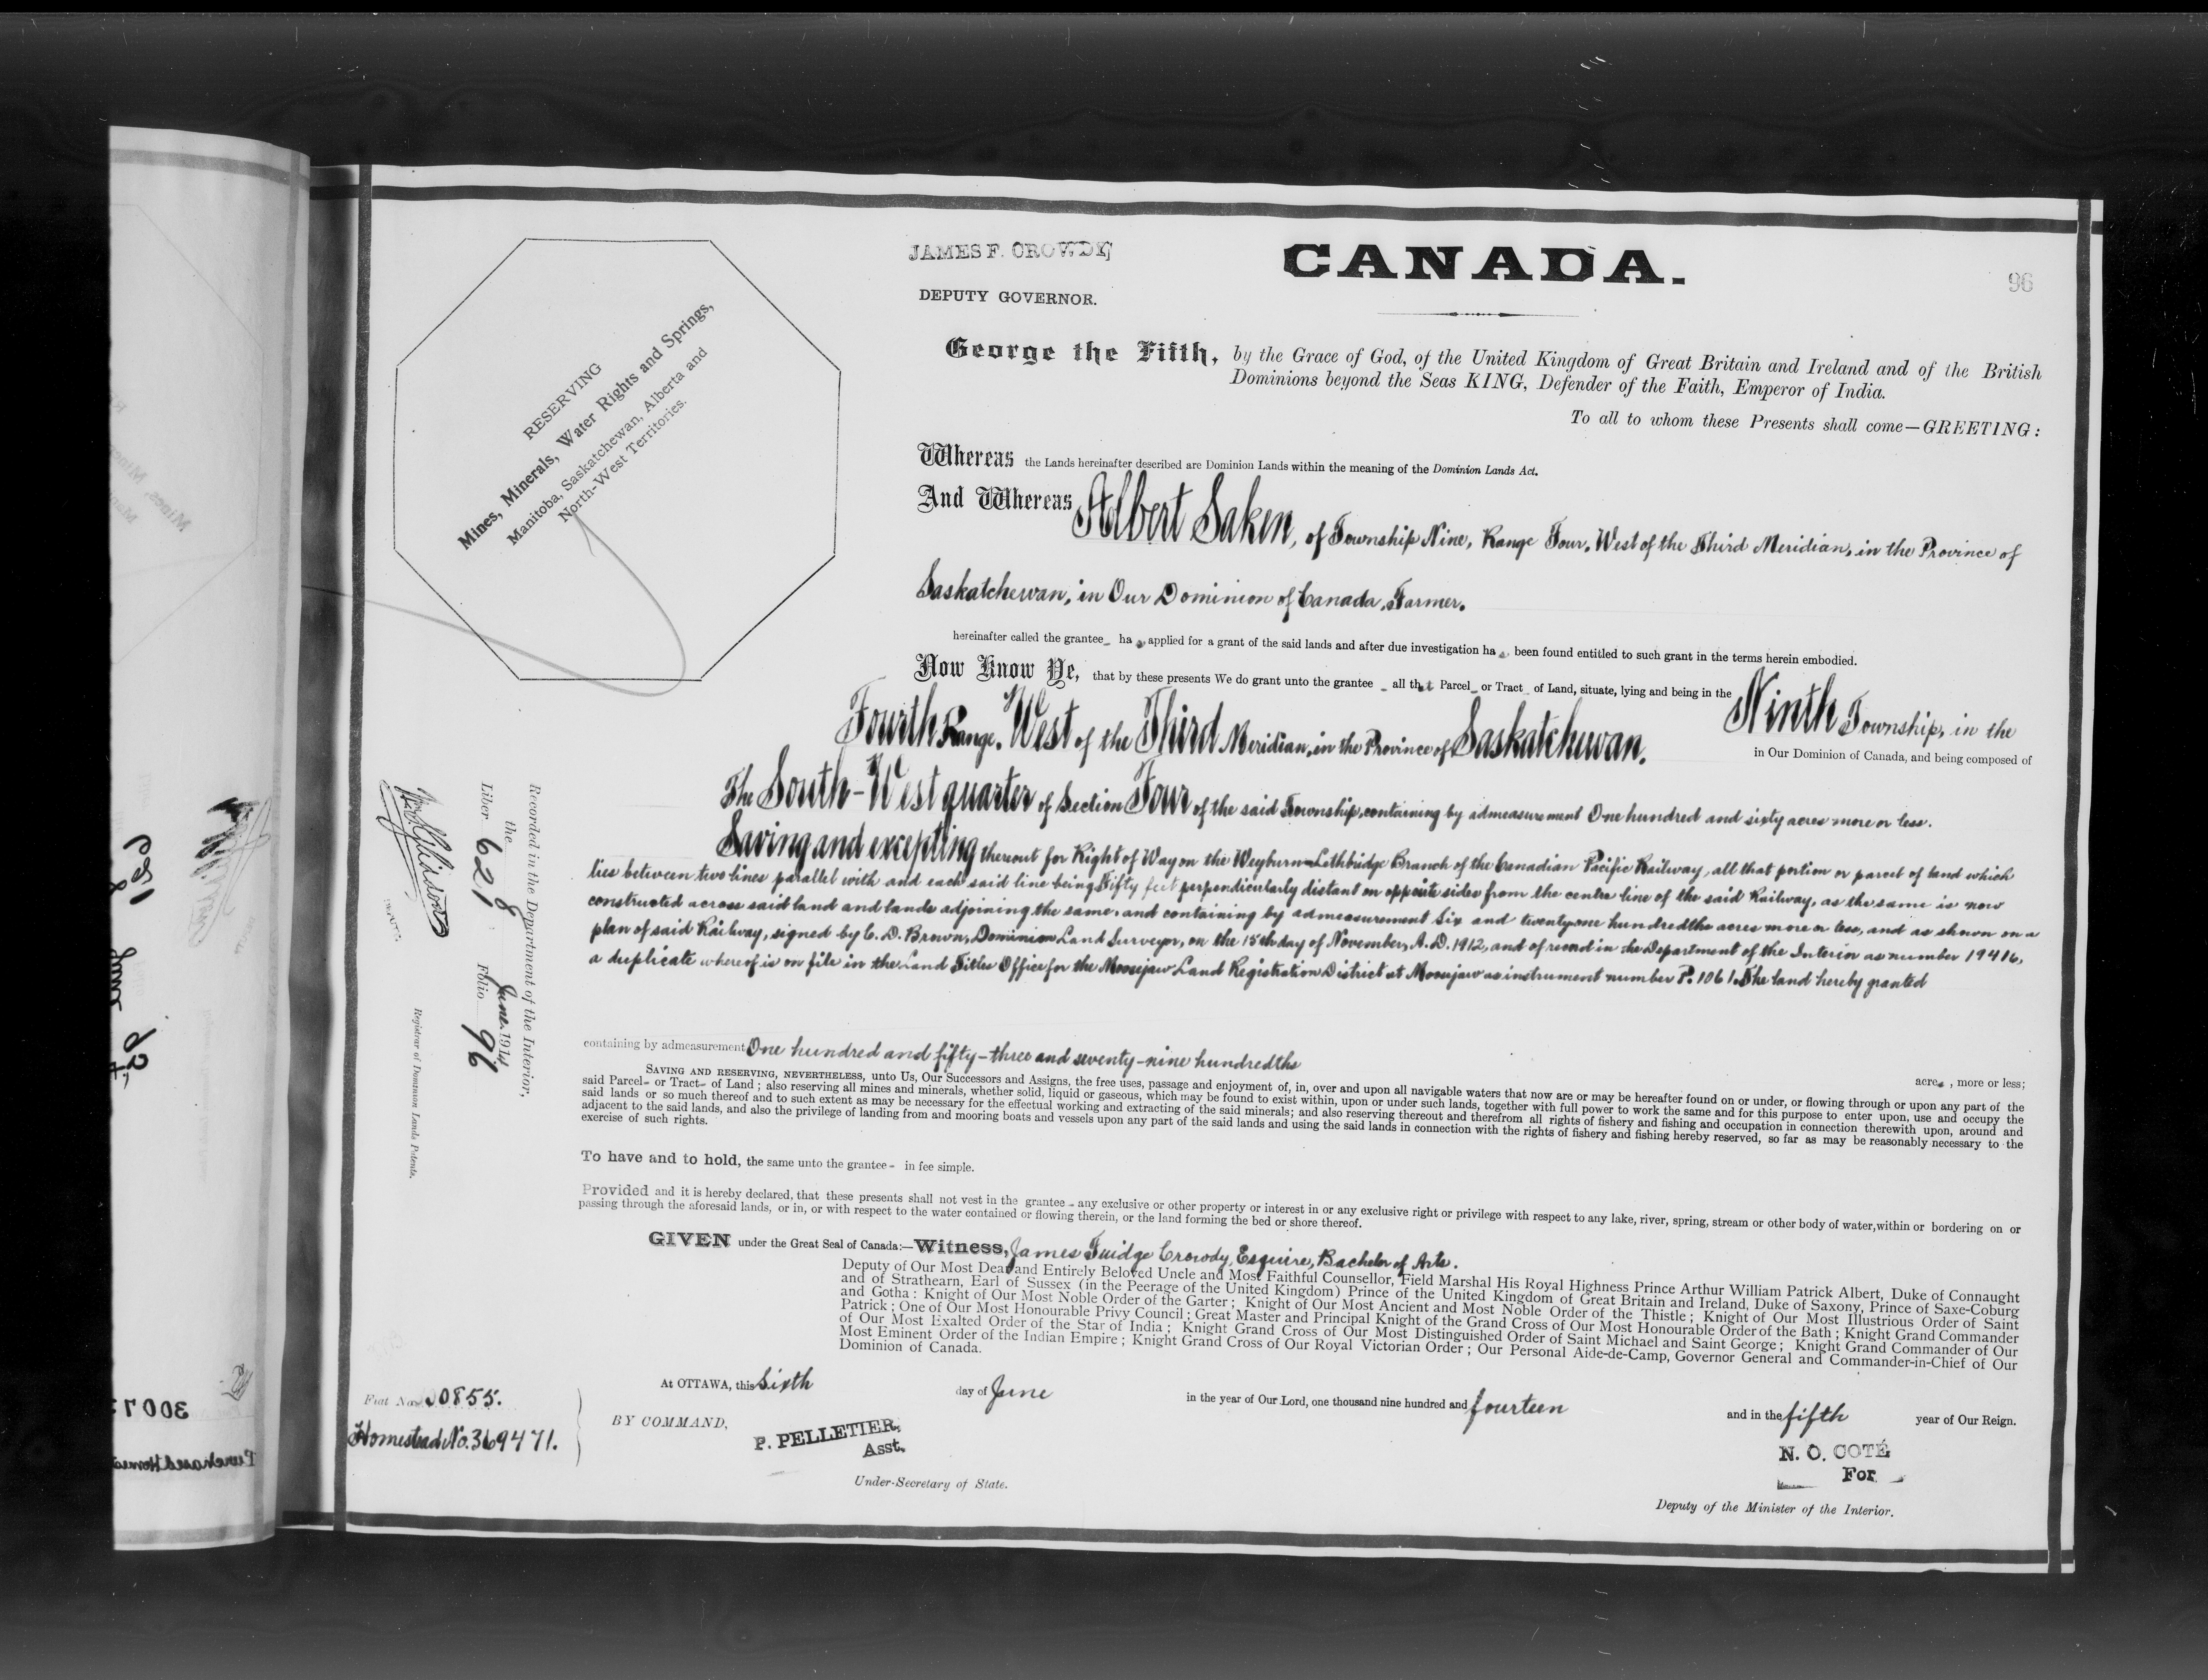 JAMES F. CROWDY,
DEPUTY GOVERNOR.
CANADA.
96
RESERVING
Mines, Minerals, Water Rights and Springs,
Manitoba, Saskatchewan, Alberta and
North-West Territories.
George the Fifth, by the Grace of God, of the United Kingdom of Great Britain and Ireland and of the British
Dominions beyond the Seas KING, Defender of the Faith, Emperor of India.
To all to whom these Presents shall come—GREETING:
Whereas the Lands hereinafter described are Dominion Lands within the meaning of the Dominion Lands Act.
And Whereas Albert Saken, of Township Nine, Range Four, West of the Third Meridian, in the Province of
Saskatchewan, in Our Dominion of Canada, Farmer.
hereinafter called the grantee_ has applied for a grant of the said lands and after due investigation has been found entitled to such grant in the terms herein embodied.
Now Know Ye, that by these presents We do grant unto the grantee _ all that Parcel_ or Tract_ of Land, situate, lying and being in the Ninth Township, in the
Fourth Range, West of the Third Meridian, in the Province of Saskatchewan.
in Our Dominion of Canada, and being composed of
The South-West quarter of Section Four of the said Township, containing by admeasurement One hundred and sixty acres more or less.
Saving and excepting thereout for Right of Way on the Weyburn-Lethbridge Branch of the Canadian Pacific Railway, all that portion or parcel of land which
lies between two lines parallel with and each said line being Fifty feet perpendicularly distant on opposite sides from the centre line of the said Railway, as the same is now
constructed across said land and lands adjoining the same, and containing by admeasurement Six and twenty-one hundredths acres more or less, and as shown on a
plan of said Railway, signed by C. D. Brown, Dominion Land Surveyor, on the 15th day of November, A. D. 1912, and of record in the Department of the Interior as number 19416,
a duplicate whereof is on file in the Land Titles Office for the Moosejaw Land Registration District at Moosejaw as instrument number P. 1061. The land hereby granted
containing by admeasurement One hundred and fifty-three and seventy-nine hundredths
acres, more or less;
SAVING AND RESERVING, NEVERTHELESS, unto Us, Our Successors and Assigns, the free uses, passage and enjoyment of, in, over and upon all navigable waters that now are or may be hereafter found on or under, or flowing through or upon any part of the
said Parcel- or Tract- of Land; also reserving all mines and minerals, whether solid, liquid or gaseous, which may be found to exist within, upon or under such lands, together with full power to work the same and for this purpose to enter upon, use and occupy the
said lands or so much thereof and to such extent as may be necessary for the effectual working and extracting of the said minerals; and also reserving thereout and therefrom all rights of fishery and fishing and occupation in connection therewith upon, around and
adjacent to the said lands, and also the privilege of landing from and mooring boats and vessels upon any part of the said lands and using the said lands in connection with the rights of fishery and fishing hereby reserved, so far as may be reasonably necessary to the
exercise of such rights.
To have and to hold, the same unto the grantee - in fee simple.
Provided and it is hereby declared, that these presents shall not vest in the grantee - any exclusive or other property or interest in or any exclusive right or privilege with respect to any lake, river, spring, stream or other body of water, within or bordering on or
passing through the aforesaid lands, or in, or with respect to the water contained or flowing therein, or the land forming the bed or shore thereof.
GIVEN under the Great Seal of Canada:—Witness, James Fuidge Crowdy, Esquire, Bachelor of Arts.
Deputy of Our Most Dear and Entirely Beloved Uncle and Most Faithful Counsellor, Field Marshal His Royal Highness Prince Arthur William Patrick Albert, Duke of Connaught
and of Strathearn, Earl of Sussex (in the Peerage of the United Kingdom) Prince of the United Kingdom of Great Britain and Ireland, Duke of Saxony, Prince of Saxe-Coburg
and Gotha: Knight of Our Most Noble Order of the Garter; Knight of Our Most Ancient and Most Noble Order of the Thistle; Knight of Our Most Illustrious Order of Saint
Patrick; One of Our Most Honourable Privy Council; Great Master and Principal Knight of the Grand Cross of Our Most Honourable Order of the Bath; Knight Grand Commander
of Our Most Exalted Order of the Star of India; Knight Grand Cross of Our Most Distinguished Order of Saint Michael and Saint George; Knight Grand Commander of Our
Most Eminent Order of the Indian Empire; Knight Grand Cross of Our Royal Victorian Order; Our Personal Aide-de-Camp, Governor General and Commander-in-Chief of Our
Dominion of Canada.
At OTTAWA, this Sixth day of June in the year of Our Lord, one thousand nine hundred and fourteen and in the fifth year of Our Reign.
BY COMMAND,
P. PELLETIER,
Asst.
Under-Secretary of State.
N. O. COTÉ
For
Deputy of the Minister of the Interior.
Recorded in the Department of the Interior,
the 8 June 1914
Liber 621 Folio 96
Registrar of Dominion Lands Patents.
Fiat No. 0855.
Homestead No. 369471.